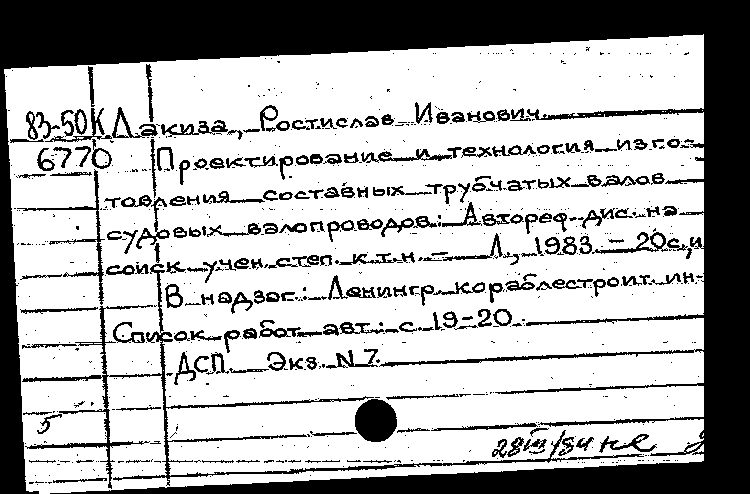 83-50К Лакиза, Ростислав Иванович.
6770 Проектирование и технология изго-
товления составных трубчатых валов
судовых валопроводов: Автореф. дис. на
соиск. учен. степ. к.т.н. – Л., 1983. – 20с., и
В надзаг.: Ленингр. кораблестроит. ин-
Список работ авт.: с. 19-20.
ДСП. Экз. N 7.
5
28 III/84